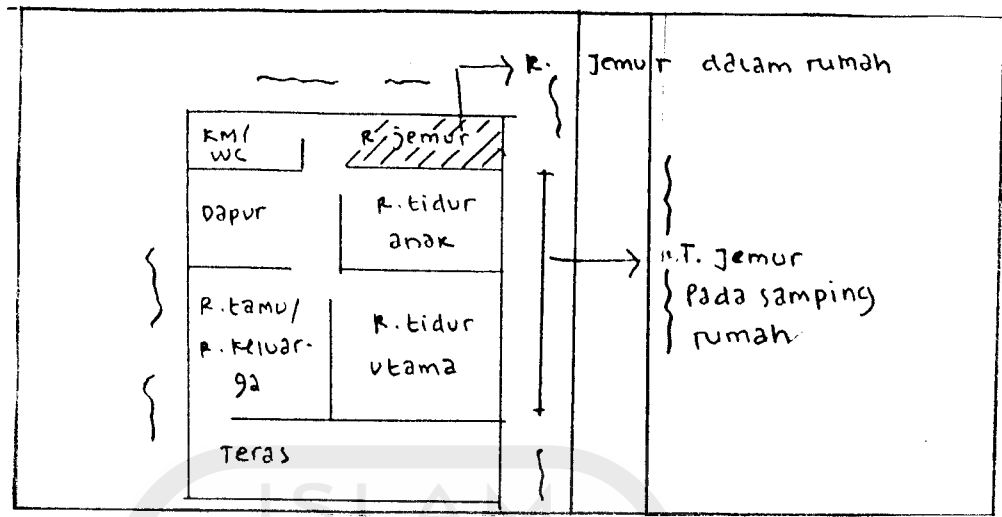 R. Jemur dalam rumah
KM/
WC
R. jemur
Dapur
R. tidur
anak
R. tamu/
R. keluar-
ga
R. tidur
utama
T. Jemur
Pada samping
rumah
Teras
ISLAM